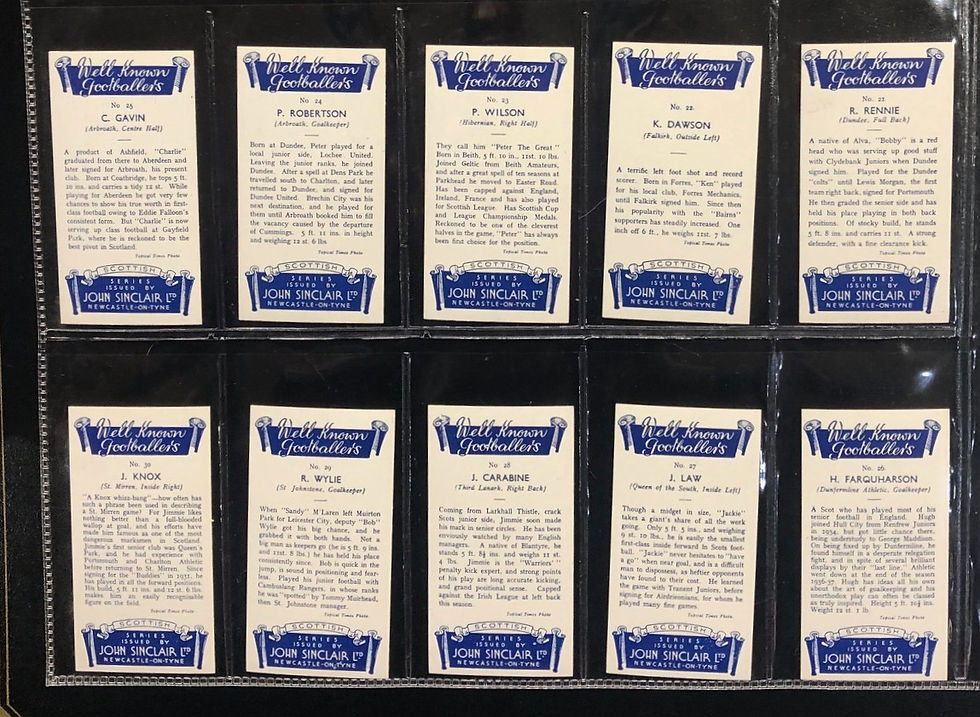 Well Known
Footballers
No 25
C. GAVIN
(Arbroath, Centre Half)
A product of Ashfield, "Charlie"
graduated from there to Aberdeen and
later signed for Arbroath, his present
club. Born at Coatbridge, he tops 5 ft.
10 ins, and carries a tidy 12 st. While
playing for Aberdeen he got very few
chances to show his true worth in first-
class football owing to Eddie Falloon's
consistent form. But "Charlie" is now
serving up class football at Gayfield
Park, where he is reckoned to be the
best pivot in Scotland.
Topical Times Photo
SCOTTISH
SERIES
ISSUED BY
JOHN SINCLAIR LTD
NEWCASTLE-ON-TYNE
Well Known
Footballers
No 24
P. ROBERTSON
(Arbroath, Goalkeeper)
Born at Dundee, Peter played for a
local junior side, Lochee United.
Leaving the junior ranks, he joined
Dundee. After a spell at Dens Park he
travelled south to Charlton, and later
returned to Dundee, and signed for
Dundee United. Brechin City was his
next destination, and he played for
them until Arbroath booked him to fill
the vacancy caused by the departure
of Cummings. 5 ft. 11 ins. in height
and weighing 12 st. 6 lbs
Topical Times Photo
SCOTTISH
SERIES
ISSUED BY
JOHN SINCLAIR LTD
NEWCASTLE-ON-TYNE
Well Known
Footballers
No 23
P. WILSON
(Hibernian, Right Half)
They call him "Peter The Great"
Born in Beith, 5 ft. 10 in., 11st. 10 lbs.
Joined Celtic from Beith Amateurs,
and after a great spell of ten seasons at
Parkhead he moved to Easter Road.
Has been capped against England,
Ireland, France and has also played
for Scottish League. Has Scottish Cup
and League Championship Medals.
Reckoned to be one of the cleverest
halves in the game, "Peter" has always
been first choice for the position.
Topical Times Photo
SCOTTISH
SERIES
ISSUED BY
JOHN SINCLAIR LTD
NEWCASTLE-ON-TYNE
Well Known
Footballers
No. 22.
K. DAWSON
(Falkirk, Outside Left)
A terrific left foot shot and record
scorer. Born in Forres, "Ken" played
for his local club, Forres Mechanics,
until Falkirk signed him. Since then
his popularity with the "Bairns"
supporters has steadily increased. One
inch off 6 ft., he weighs 11st. 7 lbs.
Topical Times Photo
SCOTTISH
SERIES
ISSUED BY
JOHN SINCLAIR LTD
NEWCASTLE-ON-TYNE
Well Known
Footballers
No. 21
R. RENNIE
(Dundee, Full Back)
A native of Alva, "Bobby" is a red
head who was serving up good stuff
with Clydebank Juniors when Dundee
signed him. Played for the Dundee
"colts" until Lewis Morgan, the first
team right back, signed for Portsmouth
He then graded the senior side and has
held his place playing in both back
positions. Of stocky build, he stands
5 ft. 8 ins. and carries 11 st. A strong
defender, with a fine clearance kick.
Topical Times Photo
SCOTTISH
SERIES
ISSUED BY
JOHN SINCLAIR LTD
NEWCASTLE-ON-TYNE
Well Known
Footballers
No. 30
J. KNOX
(St. Mirren, Inside Right)
"A Knox whizz-bang"—how often has
such a phrase been used in describing
a St. Mirren game? For Jimmie likes
nothing better than a full-blooded
wallop at goal, and his efforts have
made him famous as one of the most
dangerous marksmen in Scotland.
Jimmie's first senior club was Queen's
Park, and he had experience with
Portsmouth and Charlton Athletic
before returning to St. Mirren. Since
signing for the "Buddies" in 1931, he
has played in all the forward positions.
His build, 5 ft. 11 ins. and 12 st. 6 lbs.
makes him an easily recognisable
figure on the field.
Topical Times Photo
SCOTTISH
SERIES
ISSUED BY
JOHN SINCLAIR LTD
NEWCASTLE-ON-TYNE
Well Known
Footballers
No. 29
R. WYLIE
(St Johnstone, Goalkeeper)
When "Sandy" M'Laren left Muirton
Park for Leicester City, deputy "Bob"
Wylie got his big chance, and he
grabbed it with both hands. Not a
big man as keepers go (he is 5 ft. 9 in.
and 11st. 8 lbs.) he has held his place
consistently since. Bob is quick in the
jump, is sound in positioning and fear-
less. Played his junior football with
Cambuslang Rangers, in whose ranks
he was "spotted" by Tommy Muirhead,
then St. Johnstone manager.
Topical Times Photo
SCOTTISH
SERIES
ISSUED BY
JOHN SINCLAIR LTD
NEWCASTLE-ON-TYNE
Well Known
Footballers
No 28
J. CARABINE
(Third Lanark, Right Back)
Coming from Larkhall Thistle, crack
Scots junior side, Jimmie soon made
his mark in senior circles. He has been
enviously watched by many English
managers. A native of Blantyre, he
stands 5 ft. 8½ ins. and weighs 11 st.
4 lbs. Jimmie is the "Warriors'"
penalty kick expert, and strong points
of his play are long accurate kicking,
and grand positional sense. Capped
against the Irish League at left back
this season.
Topical Times Photo
SCOTTISH
SERIES
ISSUED BY
JOHN SINCLAIR LTD
NEWCASTLE-ON-TYNE
Well Known
Footballers
No. 27
J. LAW
(Queen of the South, Inside Left)
Though a midget in size, "Jackie"
takes a giant's share of all the work
going. Only 5 ft. 5 ins., and weighing
9 st. 10 lbs., he is easily the smallest
first-class inside forward in Scots foot-
ball. "Jackie" never hesitates to "have
a go" when near goal, and is a difficult
man to dispossess, as heftier opponents
have found to their cost. He learned
the game with Tranent Juniors, before
signing for Airdrieonians, for whom he
played many fine games.
Topical Times Photo
SCOTTISH
SERIES
ISSUED BY
JOHN SINCLAIR LTD
NEWCASTLE-ON-TYNE
Well Known
Footballers
No. 26.
H. FARQUHARSON
(Dunfermline Athletic, Goalkeeper)
A Scot who has played most of his
senior football in England. Hugh
joined Hull City from Renfrew Juniors
in 1934, but got little chance there,
being understudy to George Maddison.
On being fixed up by Dunfermline, he
found himself in a desperate relegation
fight, and in spite of several brilliant
displays by their "last line," Athletic
went down at the end of the season
1936-37. Hugh has ideas all his own
about the art of goalkeeping and his
unorthodox play can often be classed
as truly inspired. Height 5 ft. 10½ ins.
Weight 12 st. 1 lb
Topical Times Photo
SCOTTISH
SERIES
ISSUED BY
JOHN SINCLAIR LTD
NEWCASTLE-ON-TYNE